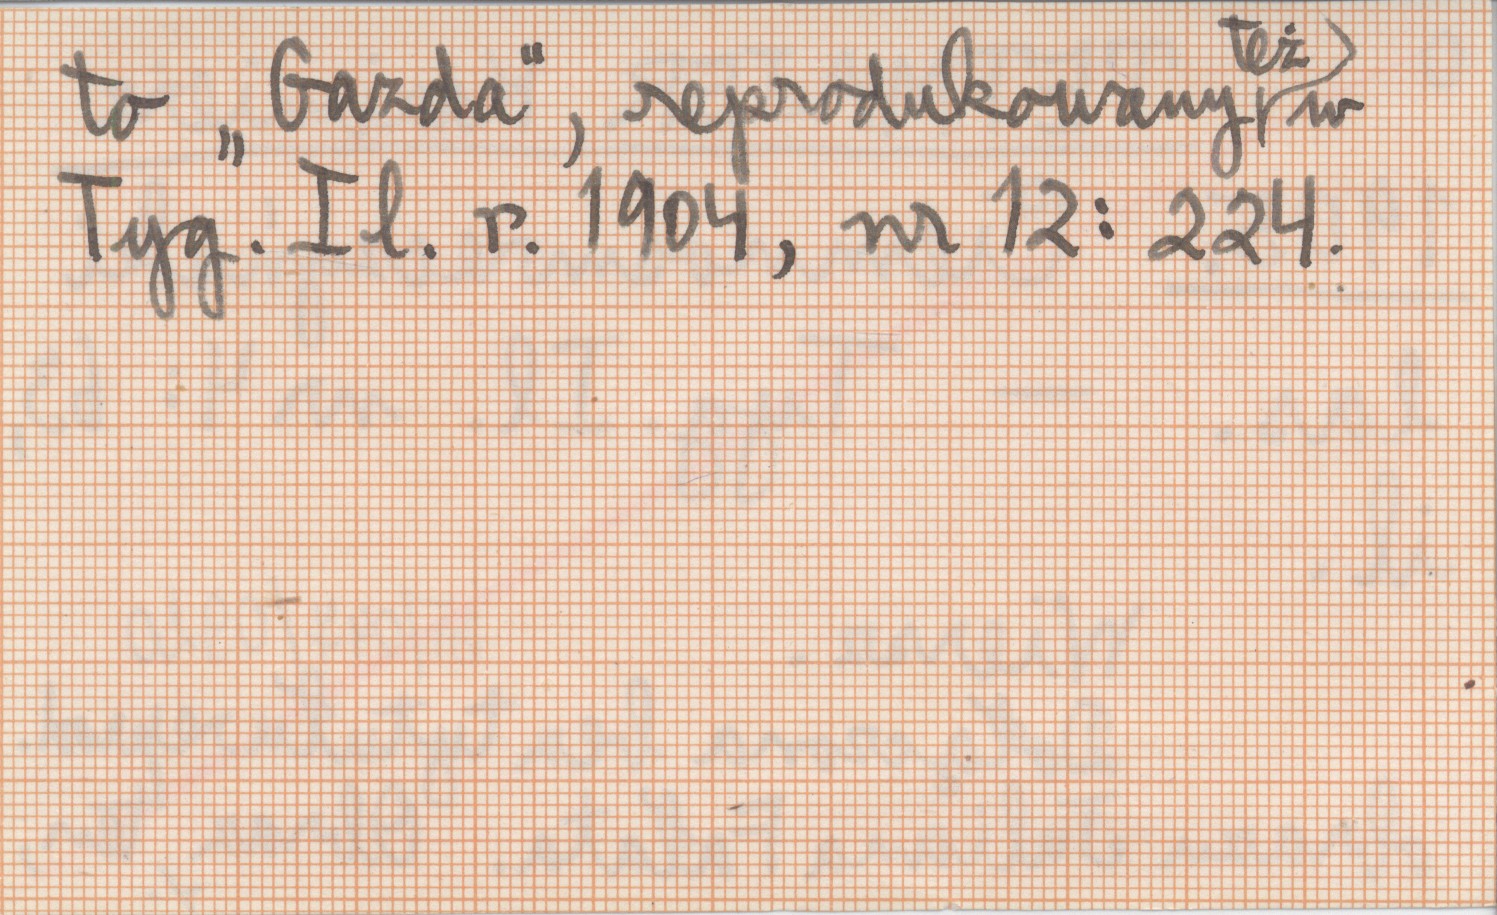 to „Gazda“, reprodukowany też w
Tyg. Il. r. 1904, nr 12: 224.